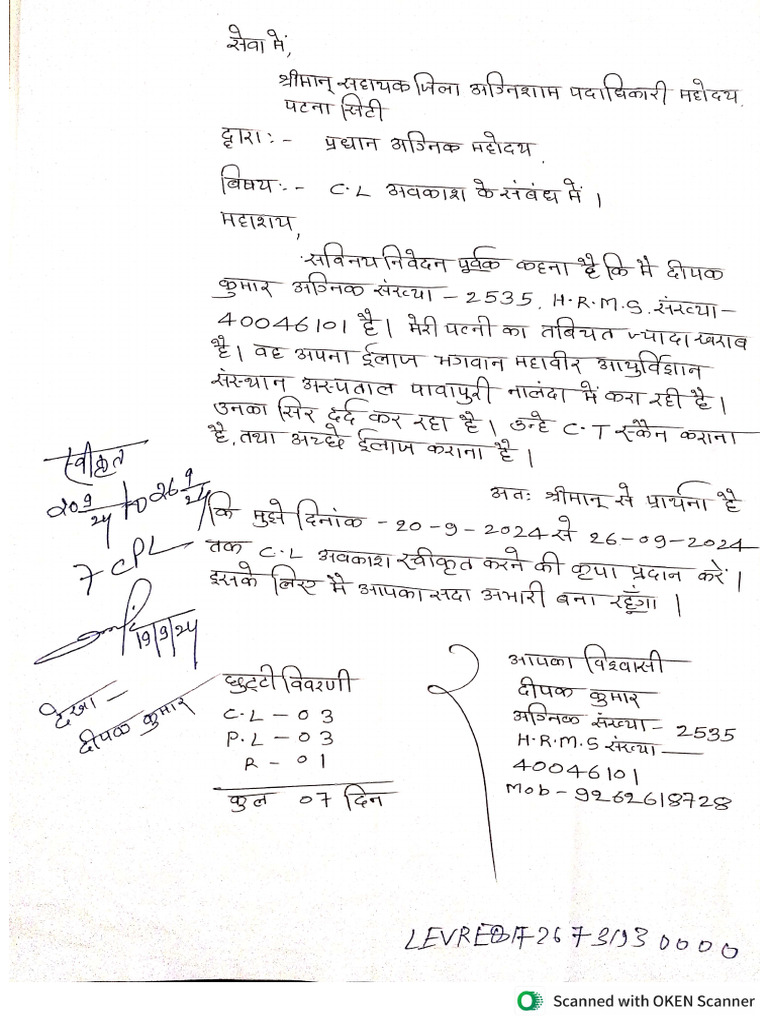 सेवा में,
श्रीमान् सहायक जिला अग्निशाम पदाधिकारी महोदय.
पटना सिटी
द्वारा:- प्रधान अग्निक महोदय.
विषय:- C.L अवकाश के संबंध में।
महाशय,
सविनय निवेदन पूर्वक कहना है कि मै दीपक
कुमार अग्निक संख्या - 2535, H.R.M.S. संख्या-
40046101 है। मेरी पत्नी का तबियत ज्यादा खराब
है। वह अपना ईलाज भगवान महावीर आयुर्विज्ञान
संस्थान अस्पताल पावापुरी नालंदा में करा रही है।
उनका सिर दर्द कर रहा है। उन्हे C.T स्कैन कराना
है, तथा अच्छे ईलाज कराना है।
अतः श्रीमान् से प्रार्थना है
कि मुझे दिनांक - 20-9-2024 से 26-09-2024
तक C.L अवकाश स्वीकृत करने की कृपा प्रदान करें।
इसके लिए मै आपका सदा अभारी बना रहूँगा।
स्वीकृत
20 9/24 to 26 9/24
7 CPL
19/9/24
देखा -
दीपक कुमार
छुट्टी विवरणी
C.L - 03
P.L - 03
R - 01
कुल 07 दिन
आपका विश्वासी
दीपक कुमार
अग्निक संख्या - 2535
H.R.M.S संख्या
40046101
Mob - 9262618728
Scanned with OKEN Scanner